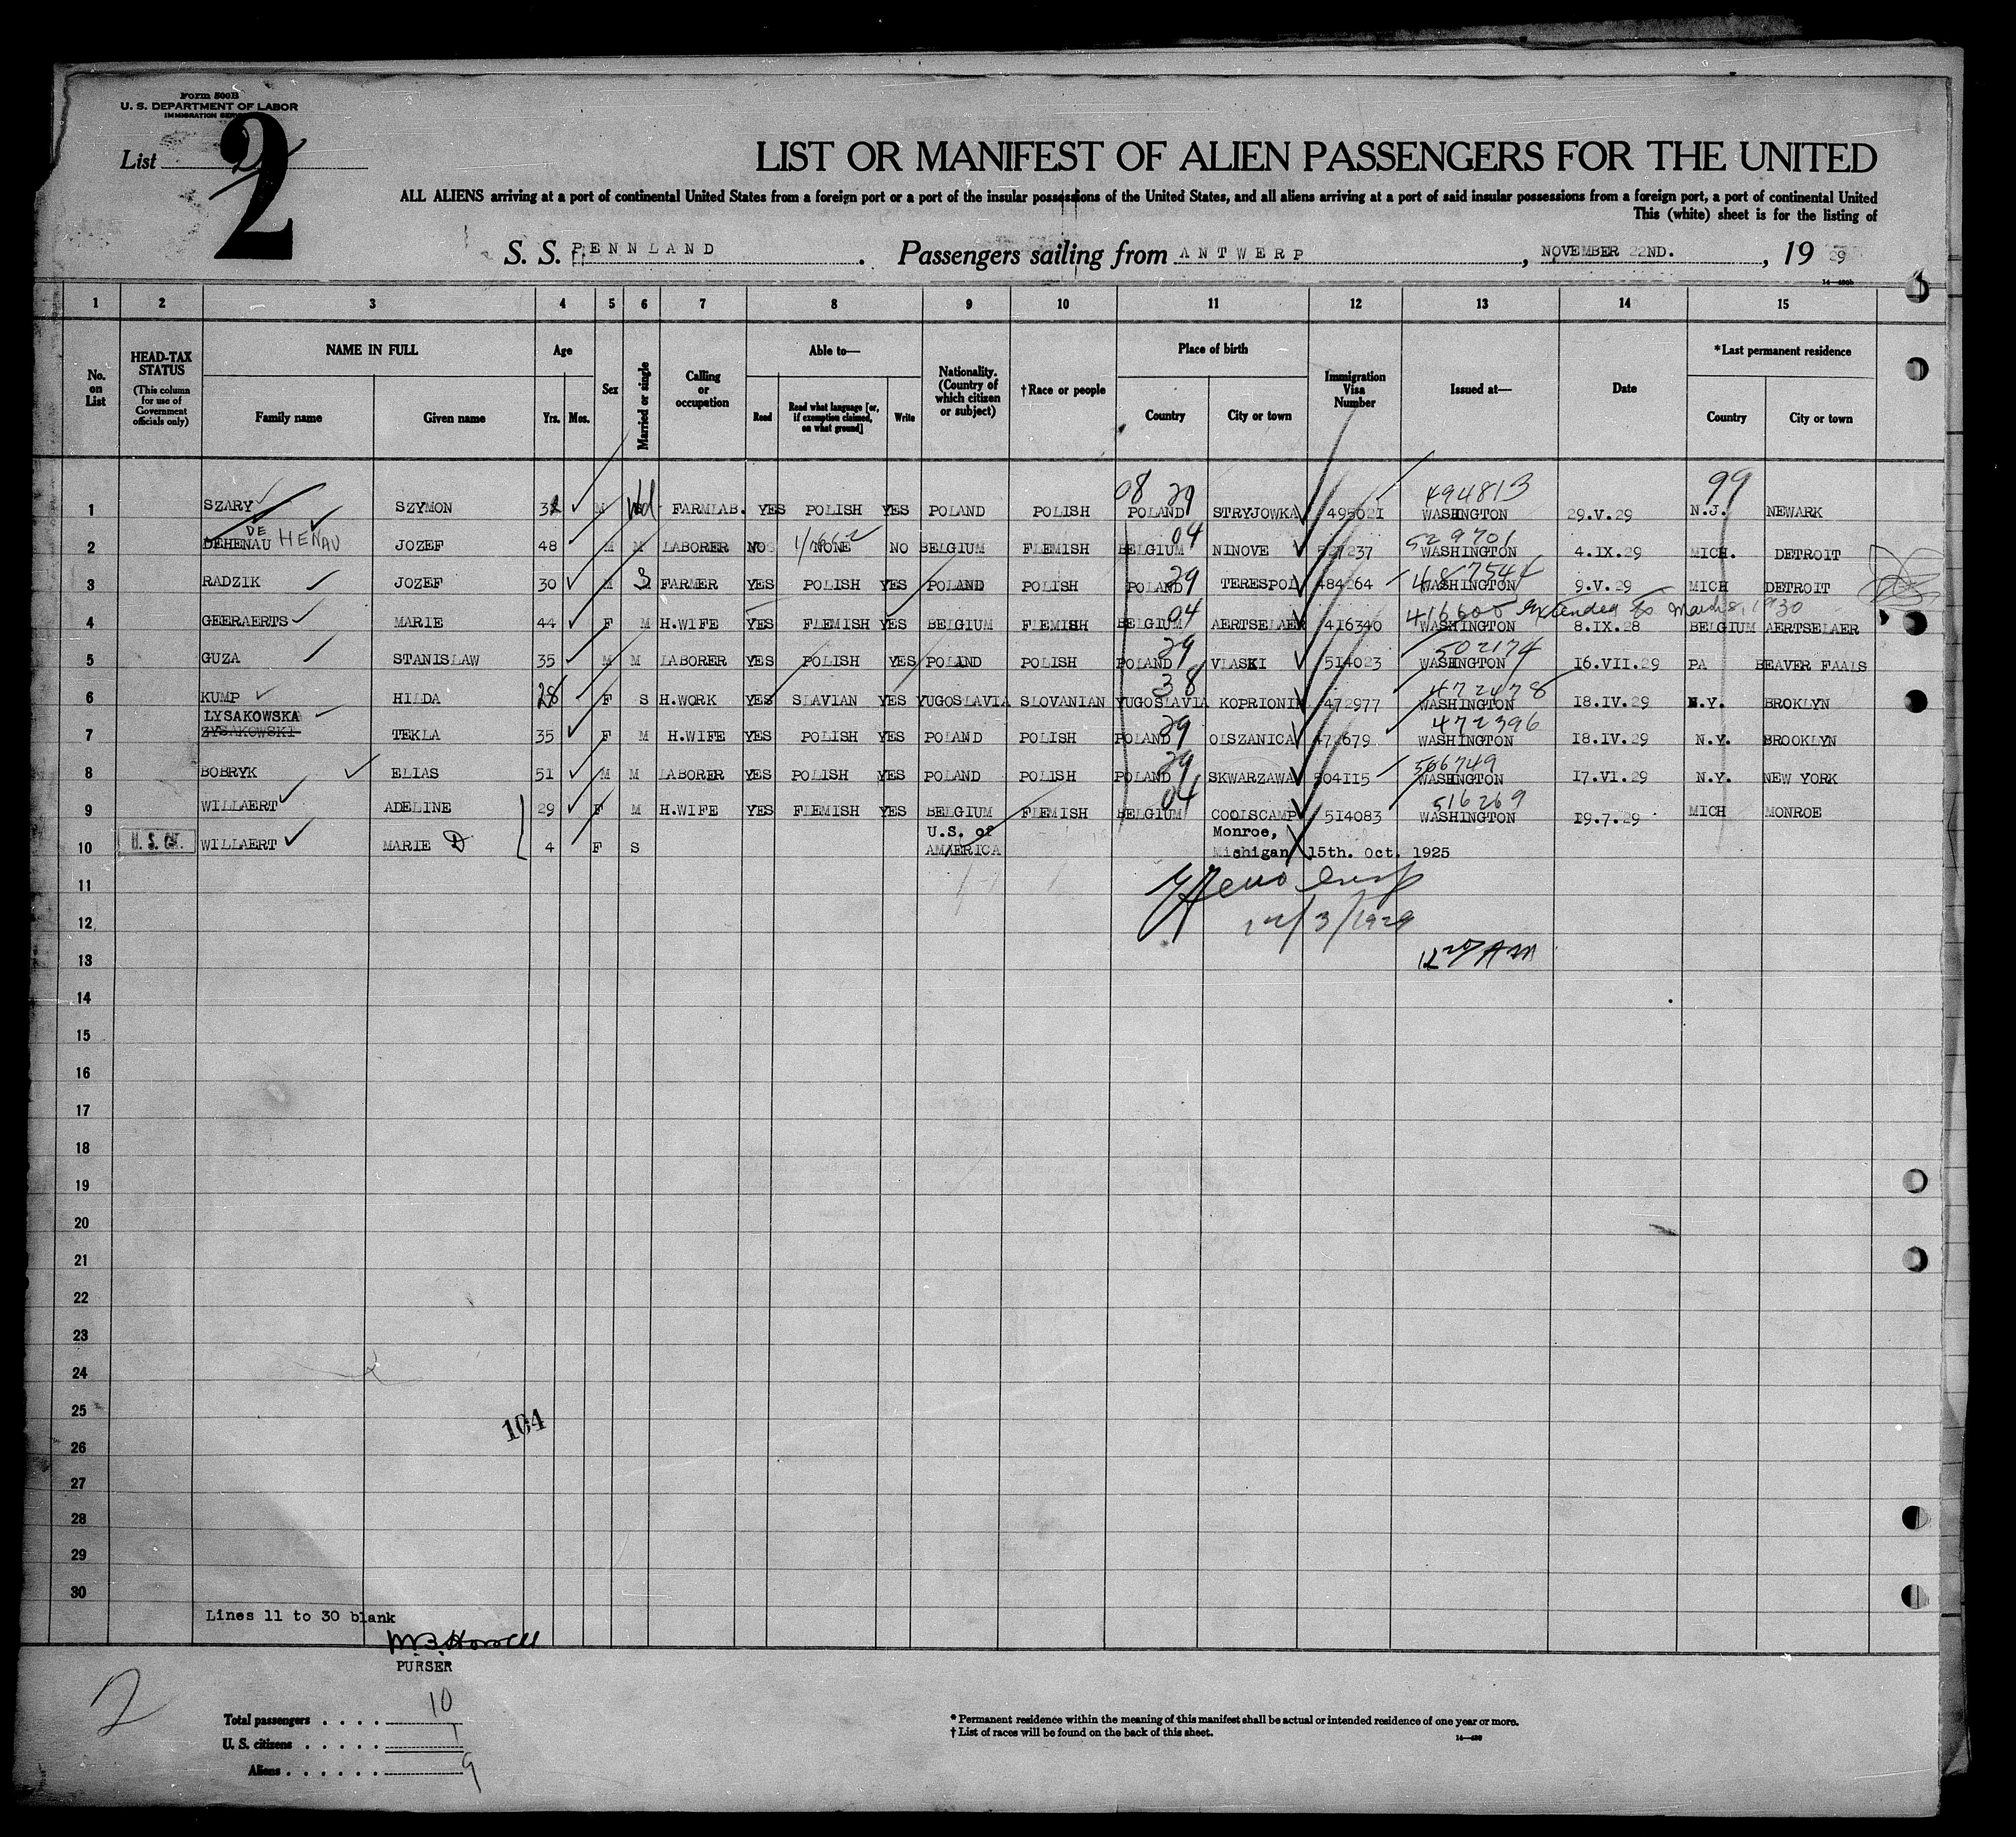 Form 500B
U. S. DEPARTMENT OF LABOR
IMMIGRATION SERVICE
List 2
2
LIST OR MANIFEST OF ALIEN PASSENGERS FOR THE UNITED
ALL ALIENS arriving at a port of continental United States from a foreign port or a port of the insular possessions of the United States, and all aliens arriving at a port of said insular possessions from a foreign port, a port of continental United
This (white) sheet is for the listing of
S. S. PENNLAND . Passengers sailing from ANTWERP , NOVEMBER 22ND. , 19 29
14—430b
1 2 3 4 5 6 7 8 9 10 11 12 13 14 15
No. on List
HEAD-TAX STATUS (This column for use of Government officials only)
NAME IN FULL Family name Given name
Age Yrs. Mos.
Sex
Married or single
Calling or occupation
Able to— Read Read what language [or, if exemption claimed, on what ground] Write
Nationality. (Country of which citizen or subject)
†Race or people
Place of birth Country City or town
Immigration Visa Number
Issued at—
Date
*Last permanent residence Country City or town
08 29 494813 99
1 SZARY SZYMON 32 M Wd FARMLAB. YES POLISH YES POLAND POLISH POLAND STRYJOWKA 495021 WASHINGTON 29.V.29 N.J. NEWARK
DE HENAU 04 529701
2 DEHENAU JOZEF 48 M M LABORER NO NONE NO BELGIUM FLEMISH BELGIUM NINOVE 527237 WASHINGTON 4.IX.29 MICH. DETROIT
29 487544
3 RADZIK JOZEF 30 M S FARMER YES POLISH YES POLAND POLISH POLAND TERESPOL 484264 WASHINGTON 9.V.29 MICH DETROIT
04 416600 Extended to March 8, 1930
4 GEERAERTS MARIE 44 F M H.WIFE YES FLEMISH YES BELGIUM FLEMISH BELGIUM AERTSELAER 416340 WASHINGTON 8.IX.28 BELGIUM AERTSELAER
29 502174
5 GUZA STANISLAW 35 M M LABORER YES POLISH YES POLAND POLISH POLAND VLASKI 514023 WASHINGTON 16.VII.29 PA BEAVER FAALS
38 472478
6 KUMP HILDA 28 F S H.WORK YES SLAVIAN YES YUGOSLAVIA SLOVANIAN YUGOSLAVIA KOPRIONIK 472977 WASHINGTON 18.IV.29 N.Y. BROKLYN
LYSAKOWSKA 29 472396
7 ZYSAKOWSKI TEKLA 35 F M H.WIFE YES POLISH YES POLAND POLISH POLAND OLSZANICA 472679 WASHINGTON 18.IV.29 N.Y. BROOKLYN
29 506749
8 BOBRYK ELIAS 51 M M LABORER YES POLISH YES POLAND POLISH POLAND SKWARZAWA 504115 WASHINGTON 17.VI.29 N.Y. NEW YORK
04 516269
9 WILLAERT ADELINE 29 F M H.WIFE YES FLEMISH YES BELGIUM FLEMISH BELGIUM COOLSCAMP 514083 WASHINGTON 19.7.29 MICH MONROE
U.S. of Monroe,
10 U. S. C. WILLAERT MARIE D 4 F S AMAERICA Michigan 15th. Oct. 1925
11
12 12/3/1929
13 AM
14
15
16
17
18
19
20
21
22
23
24
25
104
26
27
28
29
30
Lines 11 to 30 blank
PURSER
2
Total passengers . . . . 10
U. S. citizens . . . . . 1
Aliens . . . . . . 9
* Permanent residence within the meaning of this manifest shall be actual or intended residence of one year or more.
† List of races will be found on the back of this sheet.
14—430